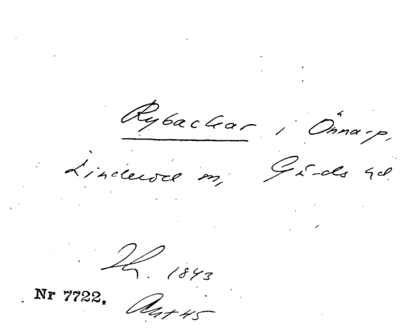 Rybackar i Önnarp,
Linderöd sn, Gärds hd.
Th. 1843
Nr 7722. Aut 45